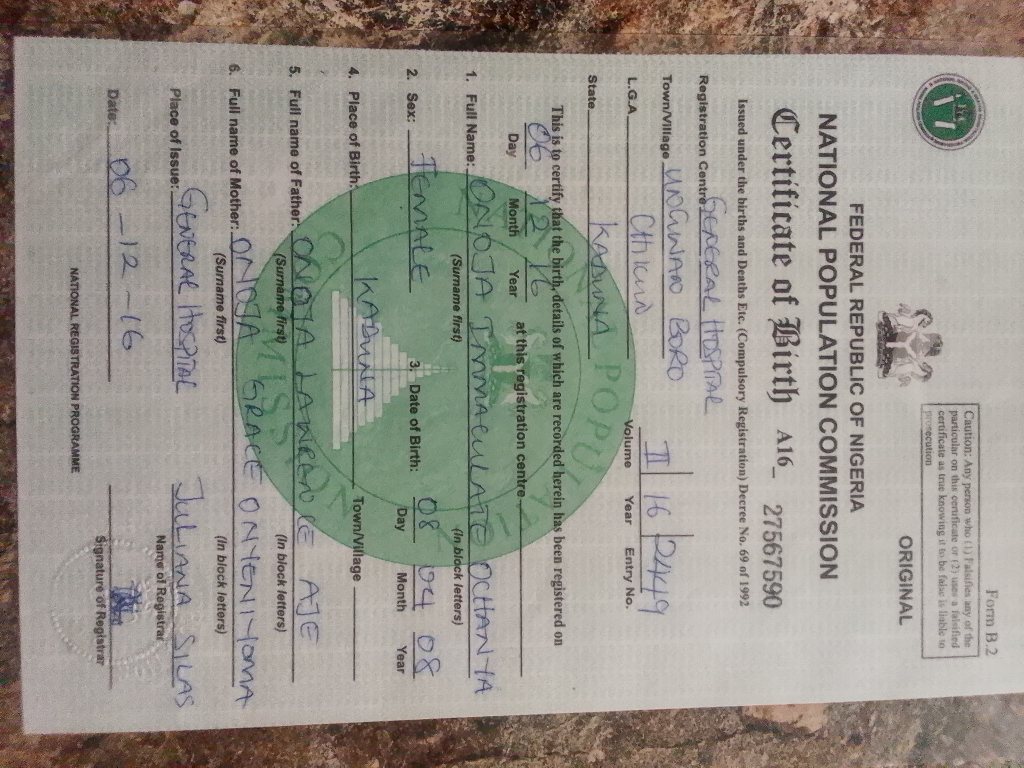 Form B.2
Caution: Any person who (1) Falsifies any of the
particular on this certificate or (2) uses a falsified
certificate as true knowing it to be false is liable to
prosecution
ORIGINAL
FEDERAL REPUBLIC OF NIGERIA
NATIONAL POPULATION COMMISSION
Certificate of Birth A16_ 27567590
Issued under the births and Deaths Etc. (Compulsory Registration) Decree No. 69 of 1992
Registration Centre GENERAL HOSPITAL
Town/Village UNGUWAN BORO II 16 2449
L.G.A CHIKUN Volume Year Entry No.
State KADUNA
This is to certify that the birth, details of which are recorded herein has been registered on
06 12 16 at this registration centre
Day Month Year
1. Full Name: ONOJA IMMACULATE OCHANYA
(Surname first) (In block letters)
2. Sex: FEMALE 3. Date of Birth: 08 04 08
Day Month Year
4. Place of Birth: KADUNA Town/Village
5. Full name of Father: ONOJA LAWRENCE AJE
(Surname first) (In block letters)
6. Full name of Mother: ONOJA GRACE ONYENIYOMA
(Surname first) (In block letters)
Place of Issue: GENERAL HOSPITAL JULIANA SILAS
Name of Registrar
Date: 06-12-16
Signature of Registrar
NATIONAL REGISTRATION PROGRAMME
NATIONAL POPULATION COMMISSION